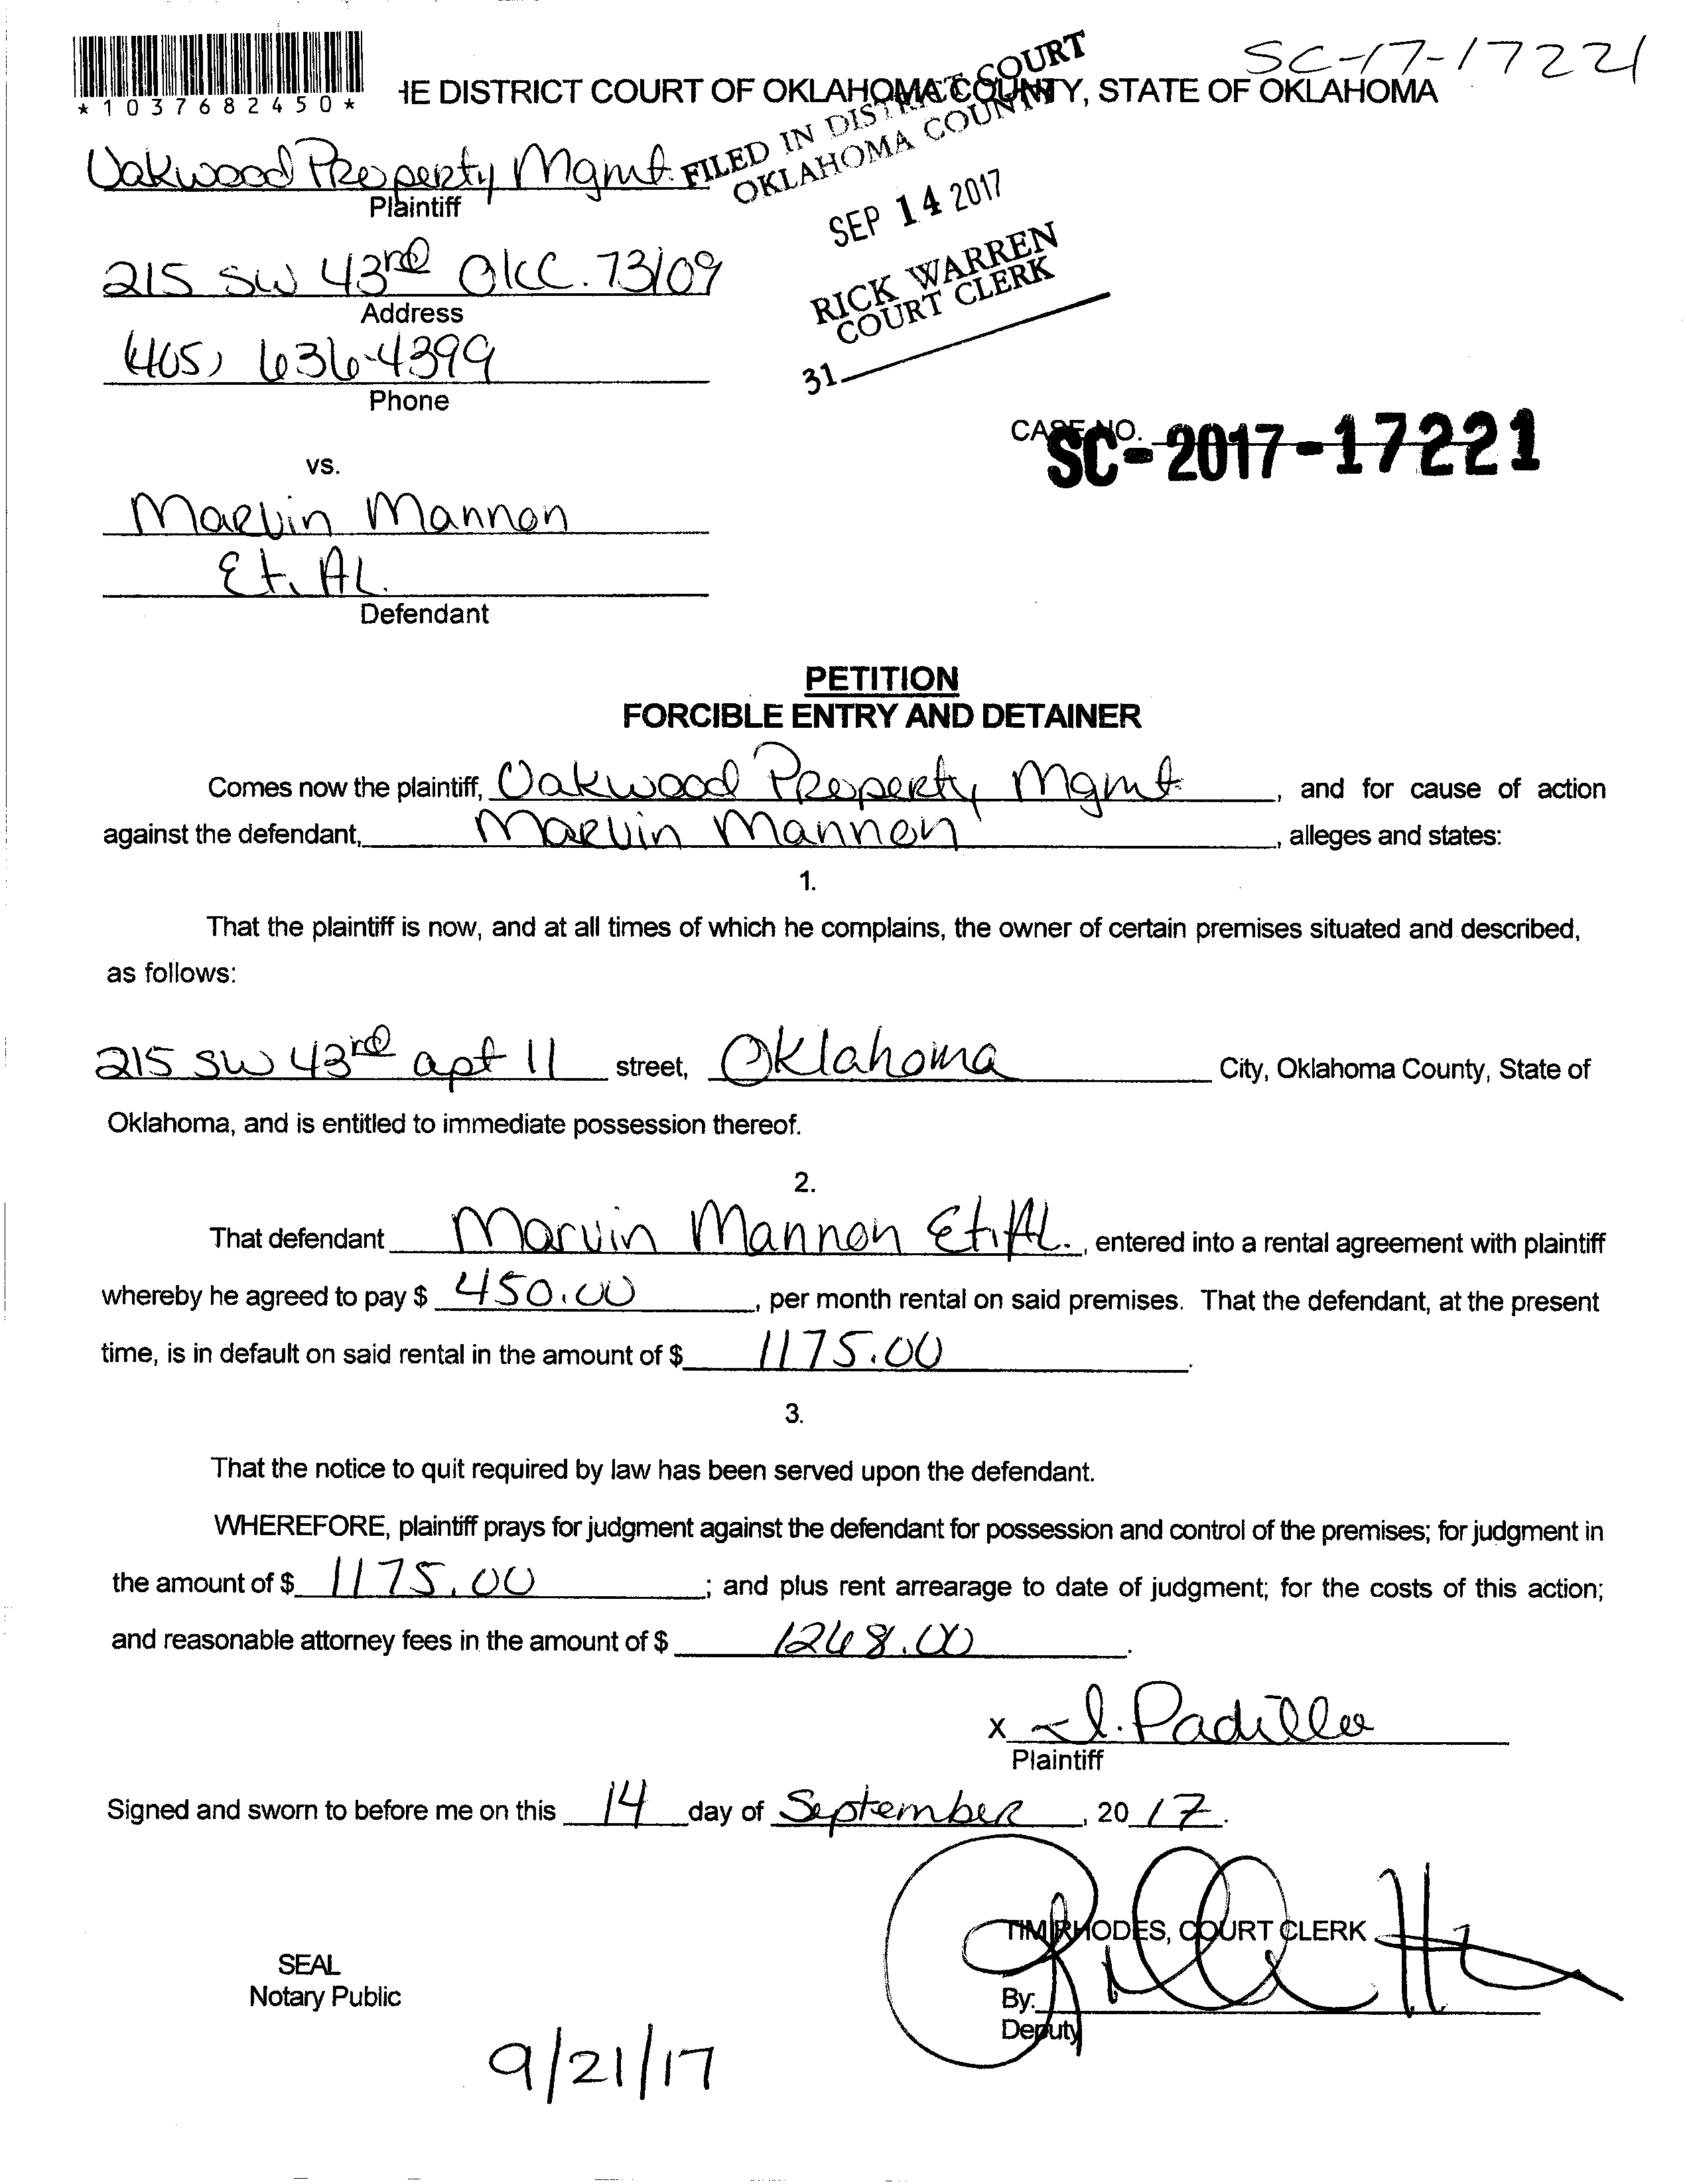 SC-17-17221
*1037682450*
HE DISTRICT COURT OF OKLAHOMA COUNTY, STATE OF OKLAHOMA
FILED IN DISTRICT COURT
OKLAHOMA COUNTY
SEP 14 2017
RICK WARREN
COURT CLERK
31
Oakwood Property Mgmt.
Plaintiff
215 SW 43rd OKC. 73109
Address
(405) 636-4399
Phone
CASE NO.
SC-2017-17221
vs.
Marvin Mannon
Et. AL.
Defendant
PETITION
FORCIBLE ENTRY AND DETAINER
Comes now the plaintiff, Oakwood Property Mgmt, and for cause of action
against the defendant, Marvin Mannon, alleges and states:
1.
That the plaintiff is now, and at all times of which he complains, the owner of certain premises situated and described,
as follows:
215 SW 43rd apt 11 street, Oklahoma City, Oklahoma County, State of
Oklahoma, and is entitled to immediate possession thereof.
2.
That defendant Marvin Mannon Et. AL., entered into a rental agreement with plaintiff
whereby he agreed to pay $ 450.00, per month rental on said premises. That the defendant, at the present
time, is in default on said rental in the amount of $ 1175.00.
3.
That the notice to quit required by law has been served upon the defendant.
WHEREFORE, plaintiff prays for judgment against the defendant for possession and control of the premises; for judgment in
the amount of $ 1175.00; and plus rent arrearage to date of judgment; for the costs of this action;
and reasonable attorney fees in the amount of $ 1268.00.
x I. Padilla
Plaintiff
Signed and sworn to before me on this 14 day of September, 20 17.
TIM RHODES, COURT CLERK
SEAL
Notary Public
By:
Deputy
9/21/17